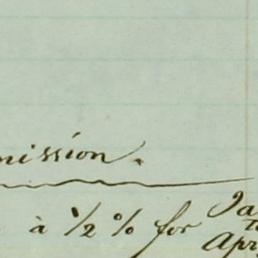 mission.
à 1/2 % for Ja
To
Apr